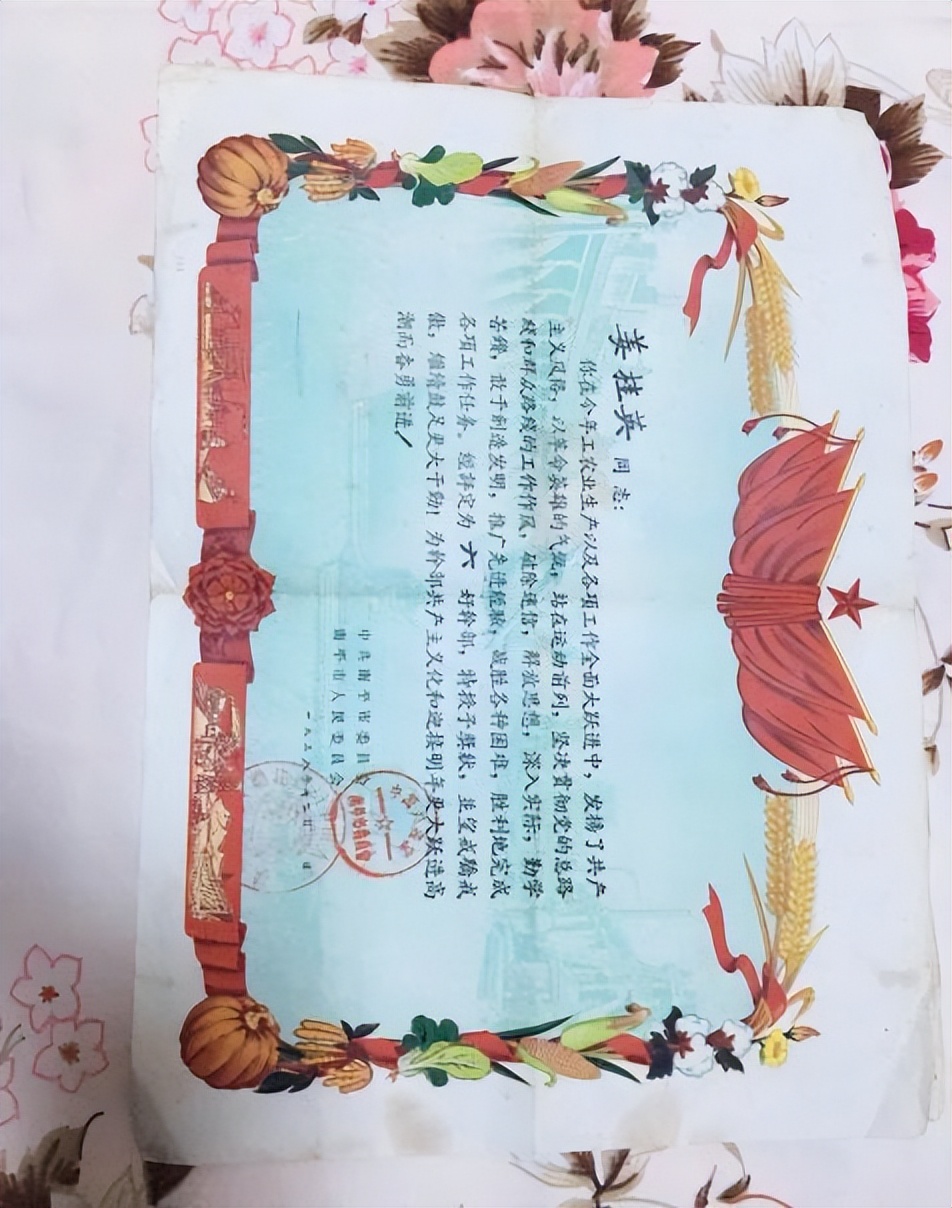 姜桂英 同志:
你在今年工农业生产以及各项工作全面大跃进中，发扬了共产
主义风格，以革命英雄的气概，站在运动前列，坚决贯彻党的总路
线和群众路线的工作作风，破除迷信，解放思想，深入实际，勤学
苦鑽，敢于創造发明，推广先进經驗，战胜各种困难，胜利地完成
各项工作任务。經評定为 六 好幹部，特授予奖状，並望戒驕戒
傲，継續鼓足更大干勁！为幹部共产主义化和迎接明年更大跃进高
潮而奋勇前进！
中共南平市委員会
南平市人民委員会
一九五八年十二月 日